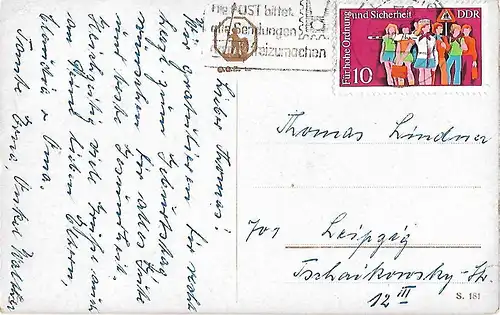 Die POST bittet,
alle Sendungen
freizumachen
Für hohe Ordnung und Sicherheit
DDR
10
Lieber Thomas!
Wir gratulieren Dir recht
herzl. zum Geburtstag!
Wir wünschen Dir alles Gute
und beste Gesundheit.
Gleichzeitig viele Grüße auch
an Deine lieben Eltern,
u. Oma.
Tante Erna, Onkel Walther
Thomas Lindner
701 Leipzig
Tschaikowsky-Str.
12 III
S. 181